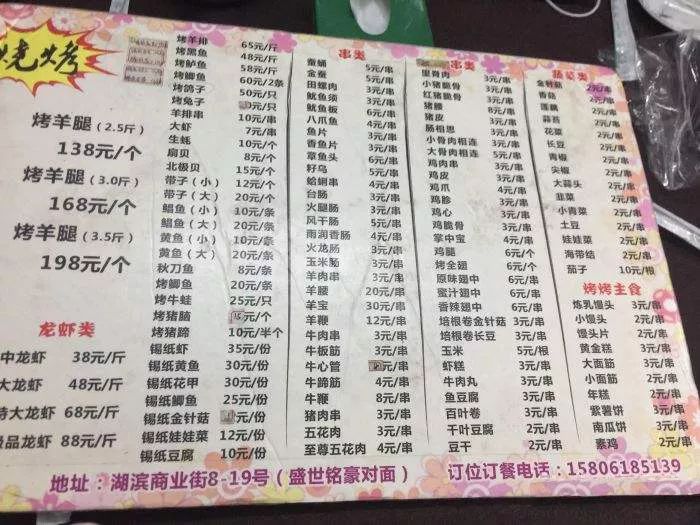 烧烤
烤羊腿（2.5斤）
138元/个
烤羊腿（3.0斤）
168元/个
烤羊腿（3.5斤）
198元/个
龙虾类
中龙虾 38元/斤
大龙虾 48元/斤
特大龙虾 68元/斤
极品龙虾 88元/斤
烤羊排 65元/斤
烤黑鱼 48元/斤
烤鲈鱼 58元/斤
烤鲫鱼 60元/2条
烤鸽子 50元/只
烤兔子 0元/只
羊排串 10元/串
大虾 7元/串
生蚝 10元/个
扇贝 8元/个
北极贝 15元/个
带子（小） 12元/个
带子（大） 20元/个
鲳鱼（小） 10元/条
鲳鱼（大） 20元/条
黄鱼（小） 10元/条
黄鱼（大） 20元/条
秋刀鱼 8元/条
烤鲫鱼 20元/条
烤牛蛙 25元/只
烤猪脑 元/个
烤猪蹄 10元/半个
锡纸虾 35元/份
锡纸黄鱼 30元/份
锡纸花甲 30元/份
锡纸鲫鱼 25元/份
锡纸金针菇 0元/份
锡纸娃娃菜 12元/份
锡纸豆腐 10元/份
串类
蚕蛹 5元/串
金蚕 5元/串
田螺肉 3元/串
鱿鱼须 3元/串
鱿鱼板 6元/串
八爪鱼 4元/串
鱼片 3元/串
香鱼片 3元/串
章鱼头 6元/串
籽乌 5元/串
蛤蜊串 4元/串
台肠 3元/串
火腿肠 3元/串
风干肠 5元/串
雨润香肠 4元/串
火龙肠 3元/串
玉米肠 3元/串
羊肉串 3元/串
羊腰 20元/串
羊宝 30元/串
羊鞭 12元/串
牛肉串 3元/串
牛板筋 3元/串
牛心管 元/串
牛蹄筋 4元/串
牛鞭 8元/串
猪肉串 3元/串
五花肉 3元/串
至尊五花肉 4元/串
串类
里脊肉 3元/串
小猪脆骨 3元/串
红猪脆骨 3元/串
猪腰 8元/串
猪皮 3元/串
肠相思 3元/串
小骨肉相连 3元/串
大骨肉相连 5元/串
鸡肉串 3元/串
鸡皮 3元/串
鸡爪 4元/串
鸡胗 3元/串
鸡心 3元/串
鸡脆骨 3元/串
掌中宝 4元/串
鸡腿 6元/个
烤全翅 6元/个
原味翅中 6元/串
蜜汁翅中 6元/串
香辣翅中 6元/串
培根卷金针菇 3元/串
培根卷长豆 3元/串
玉米 5元/根
虾糕 3元/串
牛肉丸 3元/串
鱼豆腐 3元/串
百叶卷 3元/串
千叶豆腐 2元/串
豆干 2元/串
蔬菜类
金针菇 2元/串
香菇 2元/串
莲藕 2元/串
蒜苔 2元/串
花菜 2元/串
长豆 2元/串
青椒 2元/串
尖椒 2元/串
大蒜头 2元/串
韭菜 2元/串
小青菜 2元/串
土豆 2元/串
娃娃菜 2元/串
海带结 2元/串
茄子 10元/根
烤烤主食
炼乳馒头 3元/串
小馒头 2元/串
馒头片 2元/串
黄金糕 3元/串
大面筋 3元/串
小面筋 2元/串
年糕 2元/串
紫薯饼 3元/串
南瓜饼 3元/串
素鸡 2元/串
地址：湖滨商业街8-19号（盛世铭豪对面） 订位订餐电话：15806185139